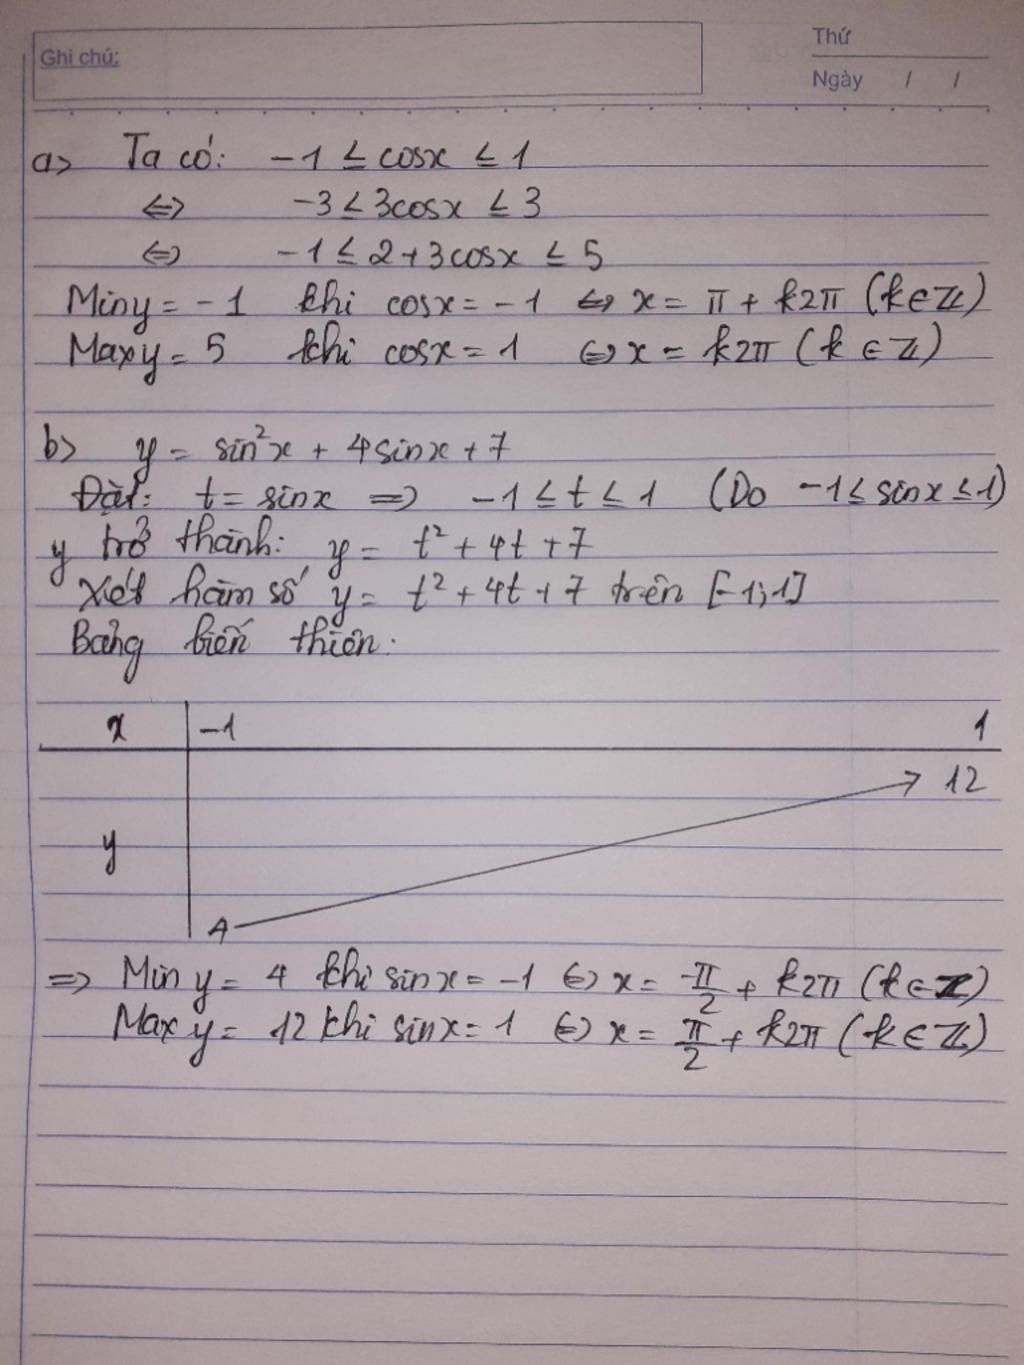 Ghi chú:
Thứ
Ngày / /
a> Ta có: -1 ≤ cosx ≤ 1
⇔ -3 ≤ 3cosx ≤ 3
⇔ -1 ≤ 2+3cosx ≤ 5
Miny = -1 khi cosx = -1 ⇔ x = π + k2π (k∈ℤ)
Maxy = 5 khi cosx = 1 ⇔ x = k2π (k ∈ ℤ)
b> y = sin²x + 4sinx + 7
Đặt: t = sinx ⇒ -1 ≤ t ≤ 1 (Do -1 ≤ sinx ≤ 1)
y trở thành: y = t² + 4t + 7
Xét hàm số y = t² + 4t + 7 trên [-1;1]
Bảng biến thiên:
x -1 1
12
y
4
⇒ Min y = 4 khi sinx = -1 ⇔ x = -π/2 + k2π (k∈ℤ)
Max y = 12 khi sinx = 1 ⇔ x = π/2 + k2π (k∈ℤ)